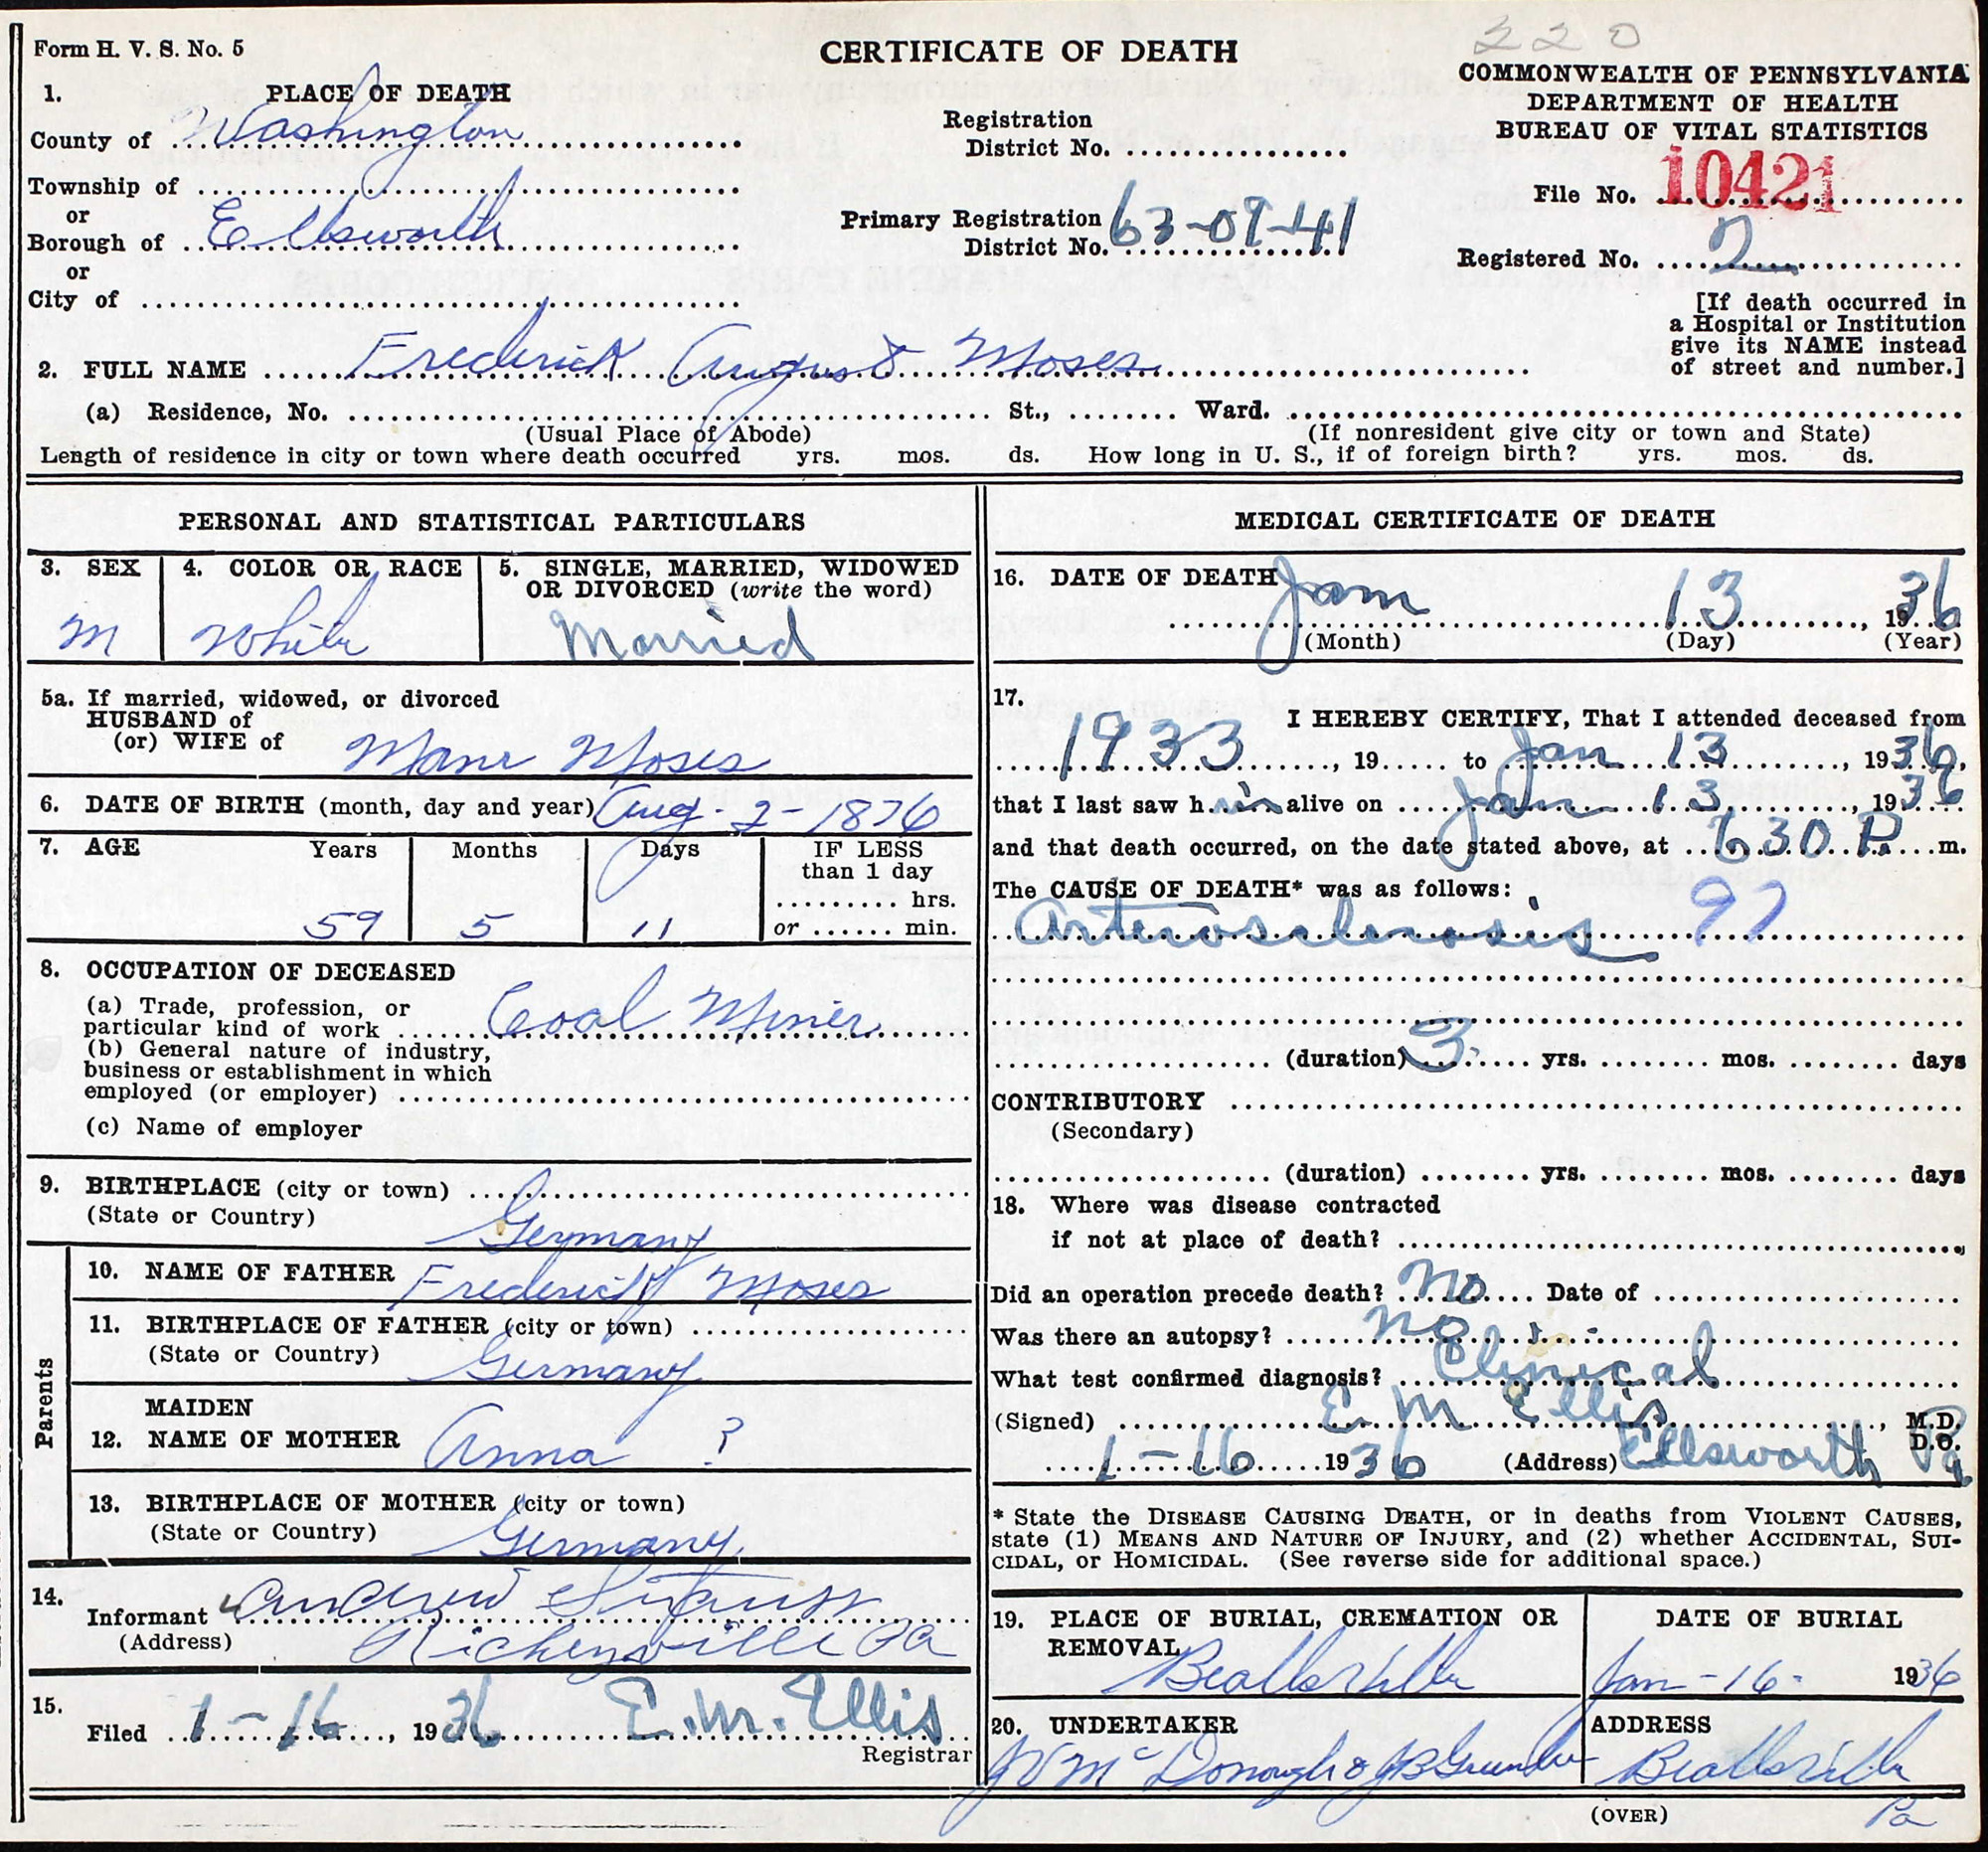 220
Form H. V. S. No. 5
CERTIFICATE OF DEATH
COMMONWEALTH OF PENNSYLVANIA
DEPARTMENT OF HEALTH
BUREAU OF VITAL STATISTICS
1. PLACE OF DEATH
County of Washington
Township of
or
Borough of Ellsworth
or
City of
Registration
District No.
Primary Registration
District No. 63-09-41
File No. 10421
Registered No. 2
[If death occurred in
a Hospital or Institution
give its NAME instead
of street and number.]
2. FULL NAME Frederick August Moses
(a) Residence, No. St., Ward.
(Usual Place of Abode) (If nonresident give city or town and State)
Length of residence in city or town where death occurred yrs. mos. ds. How long in U. S., if of foreign birth? yrs. mos. ds.
PERSONAL AND STATISTICAL PARTICULARS
3. SEX
M
4. COLOR OR RACE
White
5. SINGLE, MARRIED, WIDOWED
OR DIVORCED (write the word)
Married
5a. If married, widowed, or divorced
HUSBAND of
(or) WIFE of Moses
6. DATE OF BIRTH (month, day and year) Aug. 2 - 1876
7. AGE Years Months Days IF LESS
than 1 day
hrs.
59 5 11 or min.
8. OCCUPATION OF DECEASED
(a) Trade, profession, or
particular kind of work Coal Miner
(b) General nature of industry,
business or establishment in which
employed (or employer)
(c) Name of employer
9. BIRTHPLACE (city or town)
(State or Country) Germany
Parents
10. NAME OF FATHER Frederick Moses
11. BIRTHPLACE OF FATHER (city or town)
(State or Country) Germany
MAIDEN
12. NAME OF MOTHER Anna ?
13. BIRTHPLACE OF MOTHER (city or town)
(State or Country) Germany
14.
Informant Andrew Strauss
(Address) Richeyville Pa
15.
Filed 1-16, 1936 E. M. Ellis
Registrar
MEDICAL CERTIFICATE OF DEATH
16. DATE OF DEATH Jan 13, 1936
(Month) (Day) (Year)
17.
I HEREBY CERTIFY, That I attended deceased from
1933, 19 to Jan 13, 1936,
that I last saw him alive on Jan 13, 1936
and that death occurred, on the date stated above, at 630 P. m.
The CAUSE OF DEATH* was as follows:
Arterosclerosis 97
(duration) 3 yrs. mos. days
CONTRIBUTORY
(Secondary)
(duration) yrs. mos. days
18. Where was disease contracted
if not at place of death?
Did an operation precede death? no Date of
Was there an autopsy? no
What test confirmed diagnosis? Clinical
(Signed) E M Ellis, M.D.
D.O.
1-16 1936 (Address) Ellsworth Pa
* State the DISEASE CAUSING DEATH, or in deaths from VIOLENT CAUSES,
state (1) MEANS AND NATURE OF INJURY, and (2) whether ACCIDENTAL, SUI-
CIDAL, or HOMICIDAL. (See reverse side for additional space.)
19. PLACE OF BURIAL, CREMATION OR
REMOVAL
Beallsville
DATE OF BURIAL
Jan - 16 - 1936
20. UNDERTAKER
McDonough &
ADDRESS
Beallsville
Pa
(OVER)